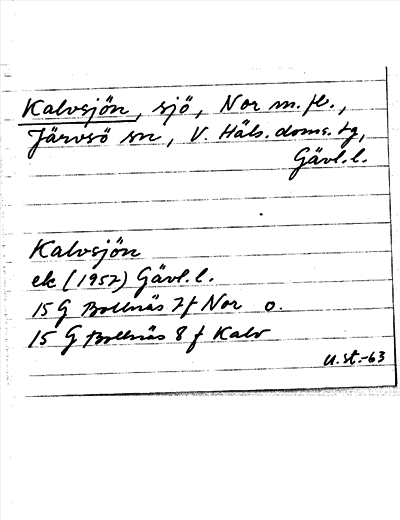 Kalvsjön, sjö, Nor m. fl.,
Järvsö sn, V. Häls. doms. tg,
Gävl. l.
Kalvsjön
ek (1957) Gävl. l.
15 G Bollnäs 7f Nor o.
15 G Bollnäs 8f Kalv
U.st.-63